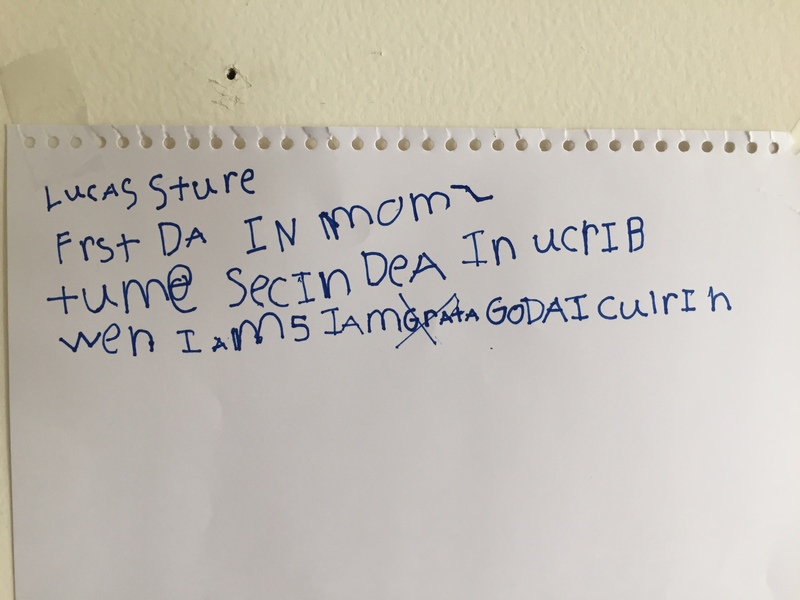 LUCAS Sture
Frst DA IN moms
tume SecIn DeA In ucrIB
wen I am 5 I Am GrAtA GODAI culrIn